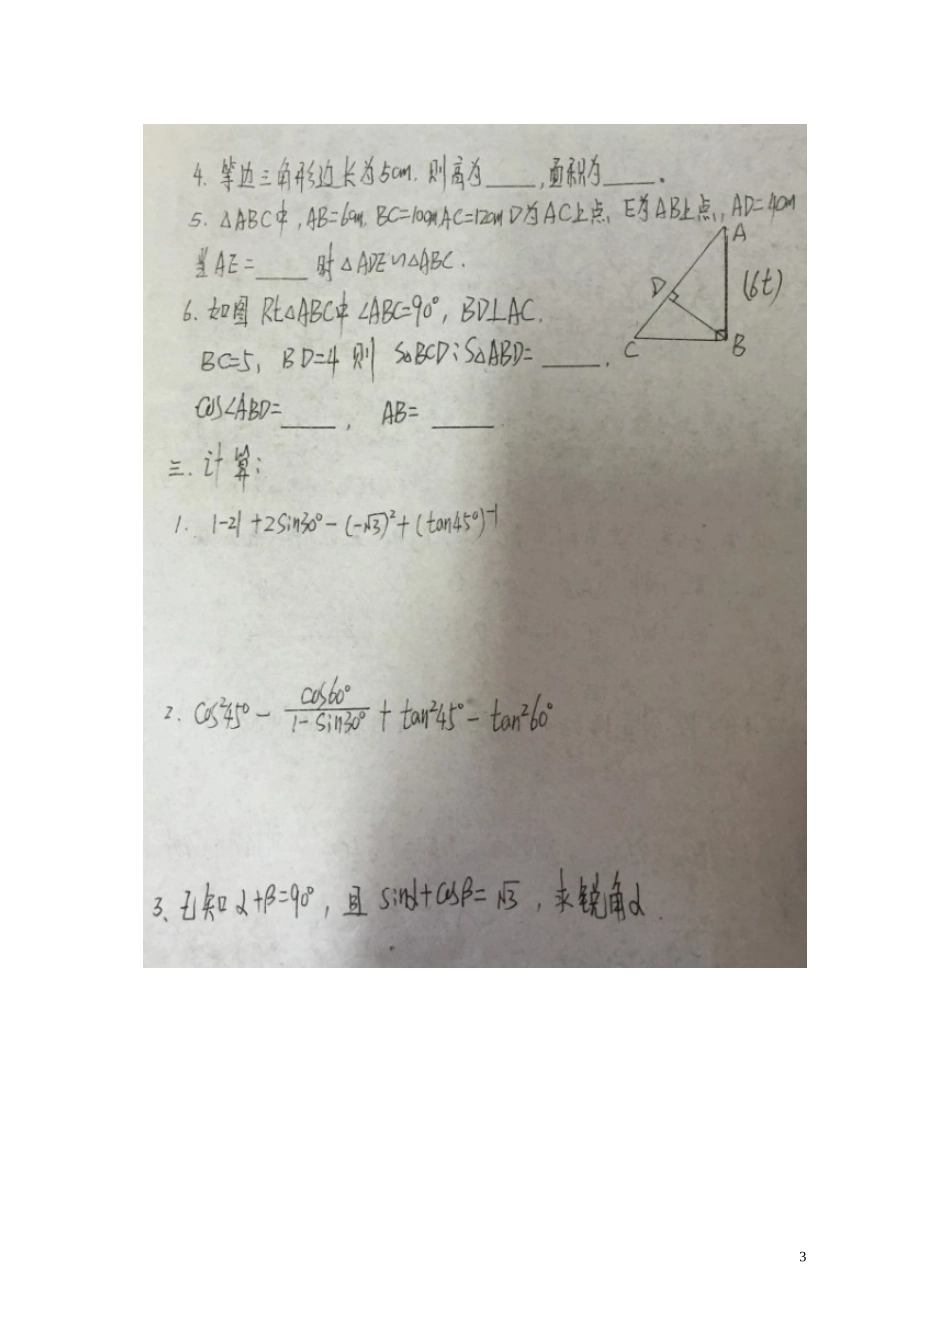 4. 等边三角形边长为5cm. 则高为____,面积为____.
5. △ABC中, AB=6cm, BC=10cm AC=12cm D为AC上点, E为AB上点, AD=4cm
当AE=____ 时 △ADE∽△ABC.
6. 如图 Rt△ABC中 ∠ABC=90°, BD⊥AC.
BC=5, BD=4 则 S△BCD:S△ABD=____.
cos∠ABD=____, AB=____.
A
D
(6t)
C
B
三. 计算:
1. |-2|+2sin30°-(-√3)²+(tan45°)⁻¹
2. cos²45° - cos60°/(1-sin30°) + tan²45° - tan²60°
3、已知α+β=90°, 且 sinα+cosβ=√3, 求锐角α.
3